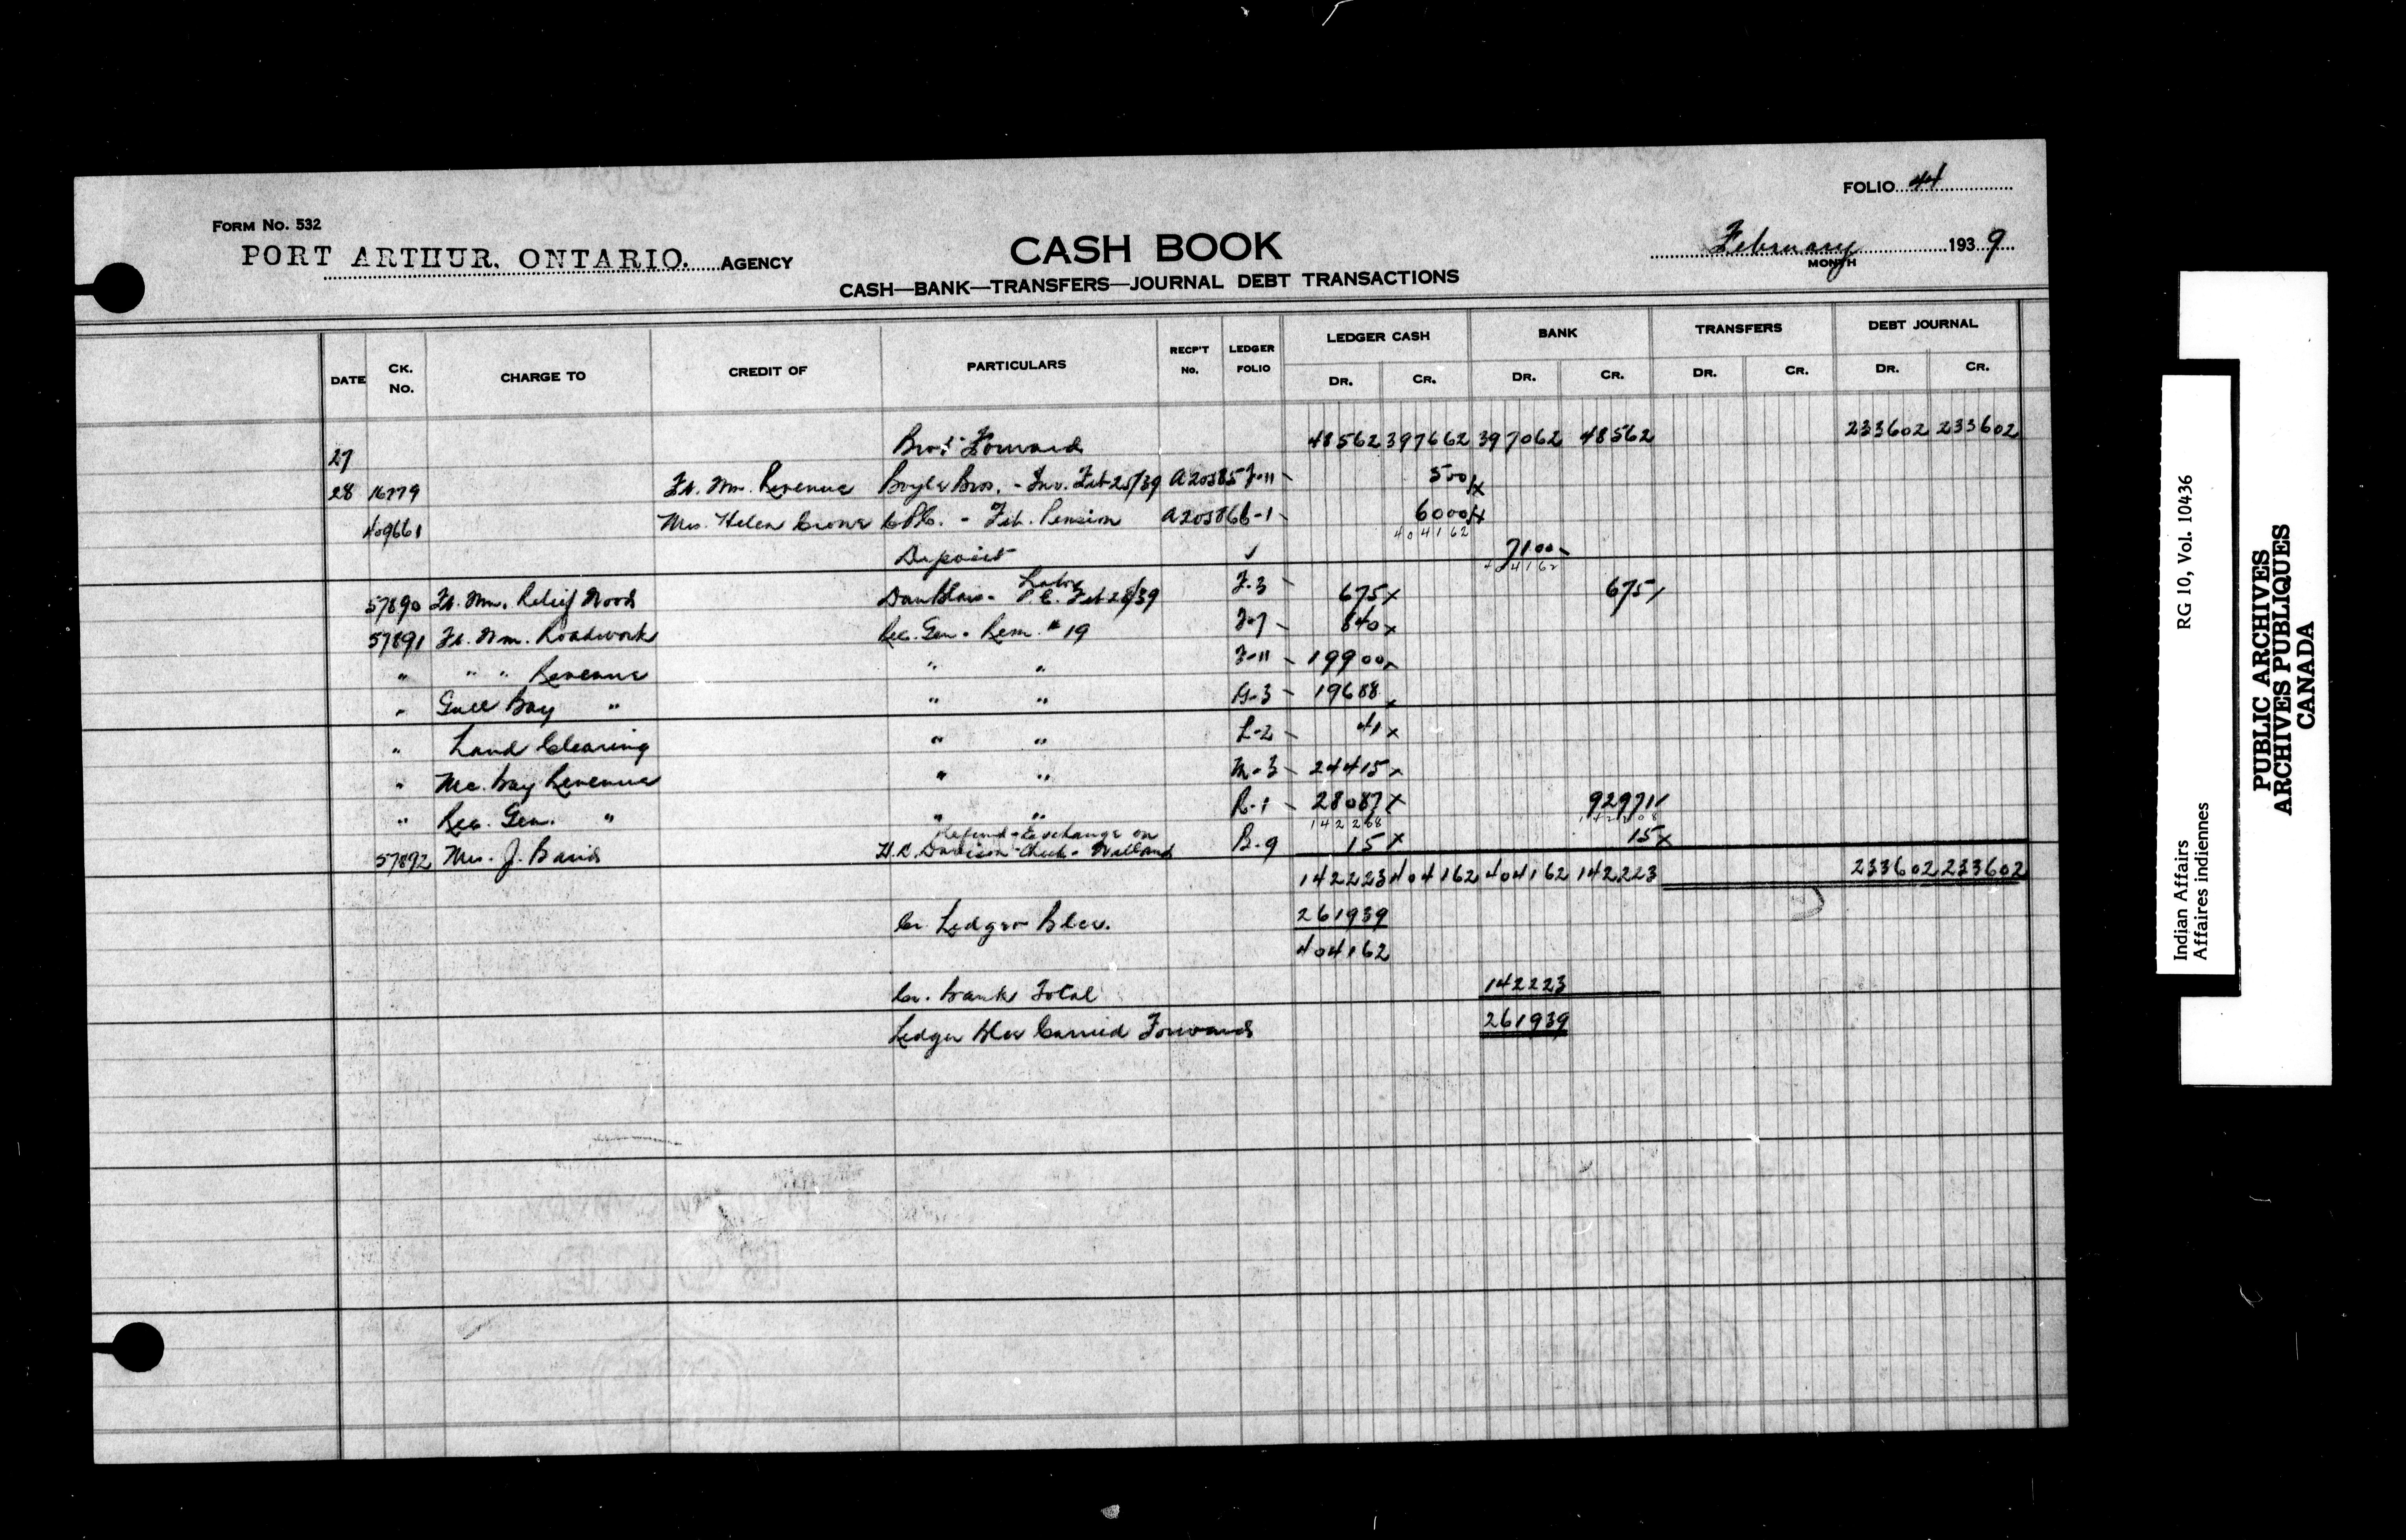 FOLIO 44
FORM NO. 532
PORT ARTHUR, ONTARIO. AGENCY
CASH BOOK
February 1939
MONTH
CASH—BANK—TRANSFERS—JOURNAL DEBT TRANSACTIONS
DATE CK. NO. CHARGE TO CREDIT OF PARTICULARS RECP'T NO. LEDGER FOLIO LEDGER CASH BANK TRANSFERS DEBT JOURNAL
DR. CR. DR. CR. DR. CR. DR. CR.
27 Bro't Forward 48562 397662 397062 48562 233602 233602
28 16779 Ft. Wm. Revenue Boyle Bros. - Inv. Feb 25/39 A20585 F-11 500
409661 Mrs. Helen Crowe - Feb. Pension A20586 6-1 6000
404162
Deposit ✓ 7100
404162
57890 Ft. Wm. Relief Wood Dan Blais - Labor P.C. Feb 28/39 F-3 675x 675
57891 Ft. Wm. Roadwork Rec. Gen. Rem. # 19 F-7 640x
" " " Revenue " " F-11 19900x
" Gull Bay " " " G-3 19688
" Land Clearing " " L-2 41x
" Mc. Bay Revenue " " M-3 24415x
" Rec. Gen. " " " R-1 28087x 92971
142208
57892 Mrs. J. Refund - Exchange on H.R. Davison Check - B-9 15x 15x
142223 404162 404162 142223 233602 233602
Cr. Ledger Blce. 261939
404162
Cr. Bank Total 142223
Ledger Blce Carried Forward 261939
Indian Affairs RG 10, Vol. 10436
Affaires indiennes
PUBLIC ARCHIVES
ARCHIVES PUBLIQUES
CANADA